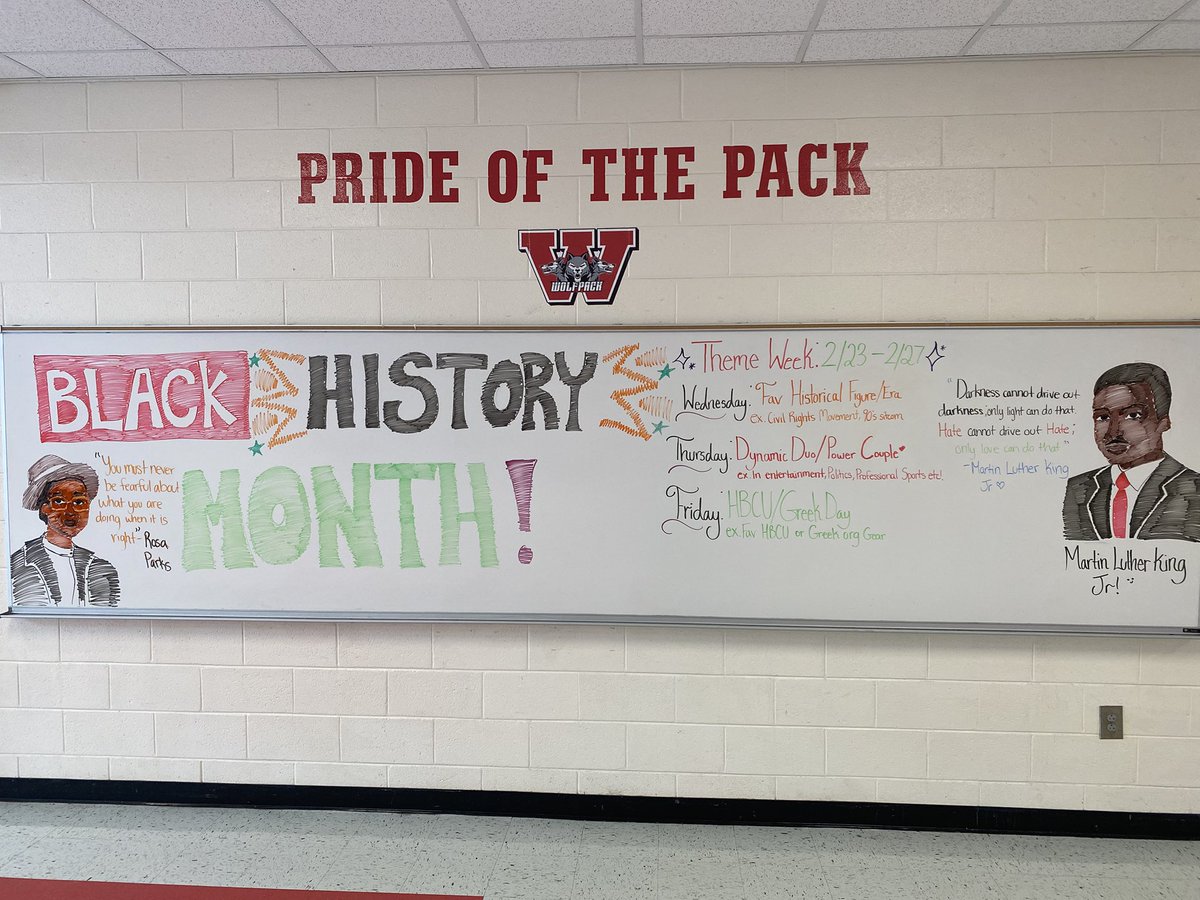 PRIDE OF THE PACK
W
WOLFPACK
BLACK HISTORY
MONTH!
"You must never
be fearful about
what you are
doing when it is
right"- Rosa
Parks
Theme Week: 2/23-2/27
Wednesday: Fav Historical Figure/Era
ex. Civil Rights Movement, 90's sitcom
Thursday: Dynamic Duo/Power Couple
ex. in entertainment, Politics, Professional Sports etc!
Friday: HBCU/Greek Day
ex. Fav HBCU or Greek org Gear
"Darkness cannot drive out
darkness; only light can do that.
Hate cannot drive out Hate;
only love can do that"
-Martin Luther King
Jr
Martin Luther King
Jr!